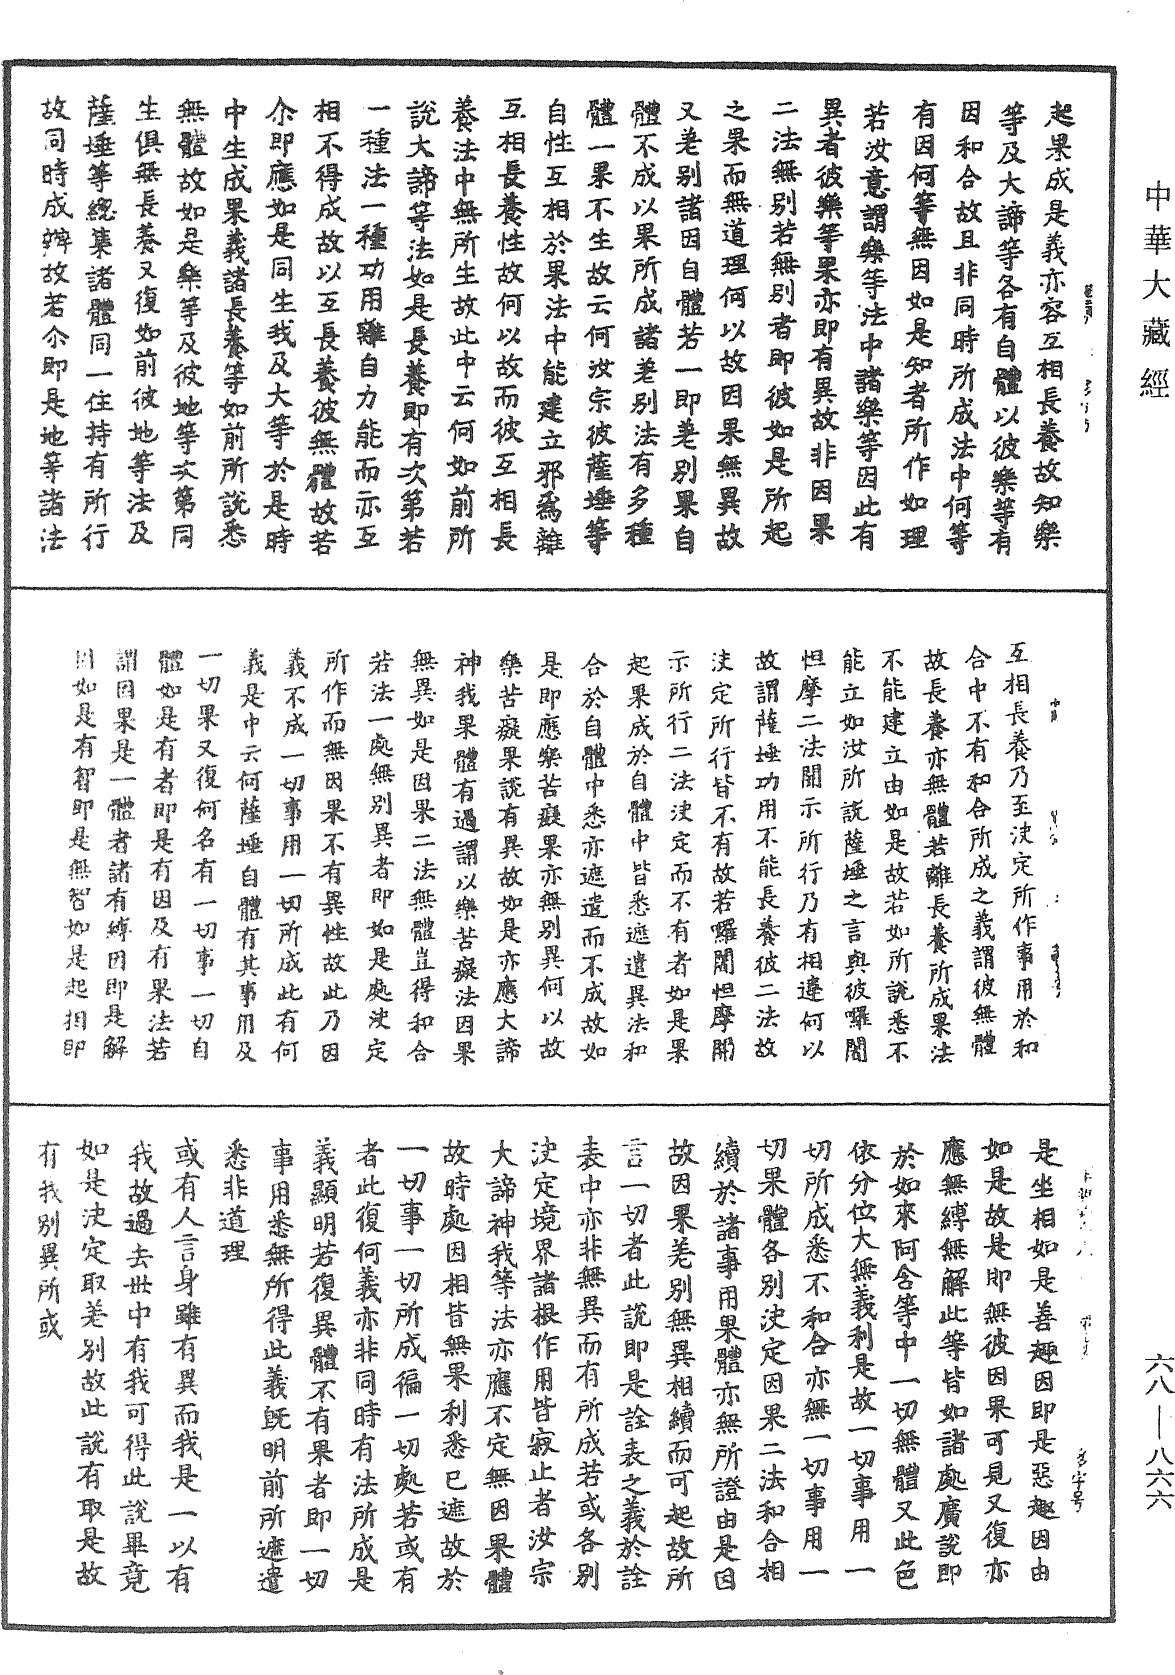 中華大藏經
起果成是義亦容互相長養故知樂
等及大諦等各有自體以彼樂等有
因和合故且非同時所成法中何等
有因何等無因如是知者所作如理
若汝意謂樂等法中諸樂等因此有
異者彼樂等果亦即有異故非因果
二法無別若無別者即彼如是所起
之果而無道理何以故因果無異故
又差別諸因自體若一即差別果自
體不成以果所成諸差別法有多種
體一果不生故云何汝宗彼薩埵等
自性互相於果法中能建立邪為離
互相長養性故何以故而彼互相長
養法中無所生故此中云何如前所
說大諦等法如是長養即有次第若
一種法一種功用離自力能而亦互
相不得成故以互長養彼無體故若
尒即應如是同生我及大等於是時
中生成果義諸長養等如前所說悉
無體故如是樂等及彼地等次第同
生俱無長養又復如前彼地等法及
薩埵等總集諸體同一住持有所行
故同時成辨故若尒即是地等諸法
互相長養乃至決定所作事用於和
合中不有和合所成之義謂彼無體
故長養亦無體若離長養所成果法
不能建立由如是故若如所說悉不
能立如汝所說薩埵之言與彼囉闍
怛摩二法開示所行乃有相違何以
故謂薩埵功用不能長養彼二法故
決定所行皆不有故若囉闍怛摩開
示所行二法決定而不有者如是果
起果成於自體中皆悉遮遣異法和
合於自體中悉亦遮遣而不成故如
是即應樂苦癡果亦無別異何以故
樂苦癡果說有異故如是亦應大諦
神我果體有過謂以樂苦癡法因果
無異如是因果二法無體豈得和合
若法一處無別異者即如是處決定
所作而無因果不有異性故此乃因
義不成一切事用一切所成此有何
義是中云何薩埵自體有其事用及
一切果又復何名有一切事一切自
體如是有者即是有因及有果法若
謂因果是一體者諸有縛因即是解
因如是有智即是無智如是起相即
是坐相如是善趣因即是惡趣因由
如是故是即無彼因果可見又復亦
應無縛無解此等皆如諸處廣說即
於如來阿含等中一切無體又此色
依分位大無義利是故一切事用一
切所成悉不和合亦無一切事用一
切果體各別決定因果二法和合相
續於諸事用果體亦無所證由是因
故因果差別無異相續而可起故所
言一切者此說即是詮表之義於詮
表中亦非無異而有所成若或各別
決定境界諸根作用皆寂止者汝宗
大諦神我等法亦應不定無因果體
故時處因相皆無果利悉已遮故於
一切事一切所成徧一切處若或有
者此復何義亦非同時有法所成是
義顯明若復異體不有果者即一切
事用悉無所得此義既明前所遮遣
悉非道理
或有人言身雖有異而我是一以有
我故過去世中有我可得此說畢竟
如是決定取差別故此說有取是故
有我別異所或
六八—八六六